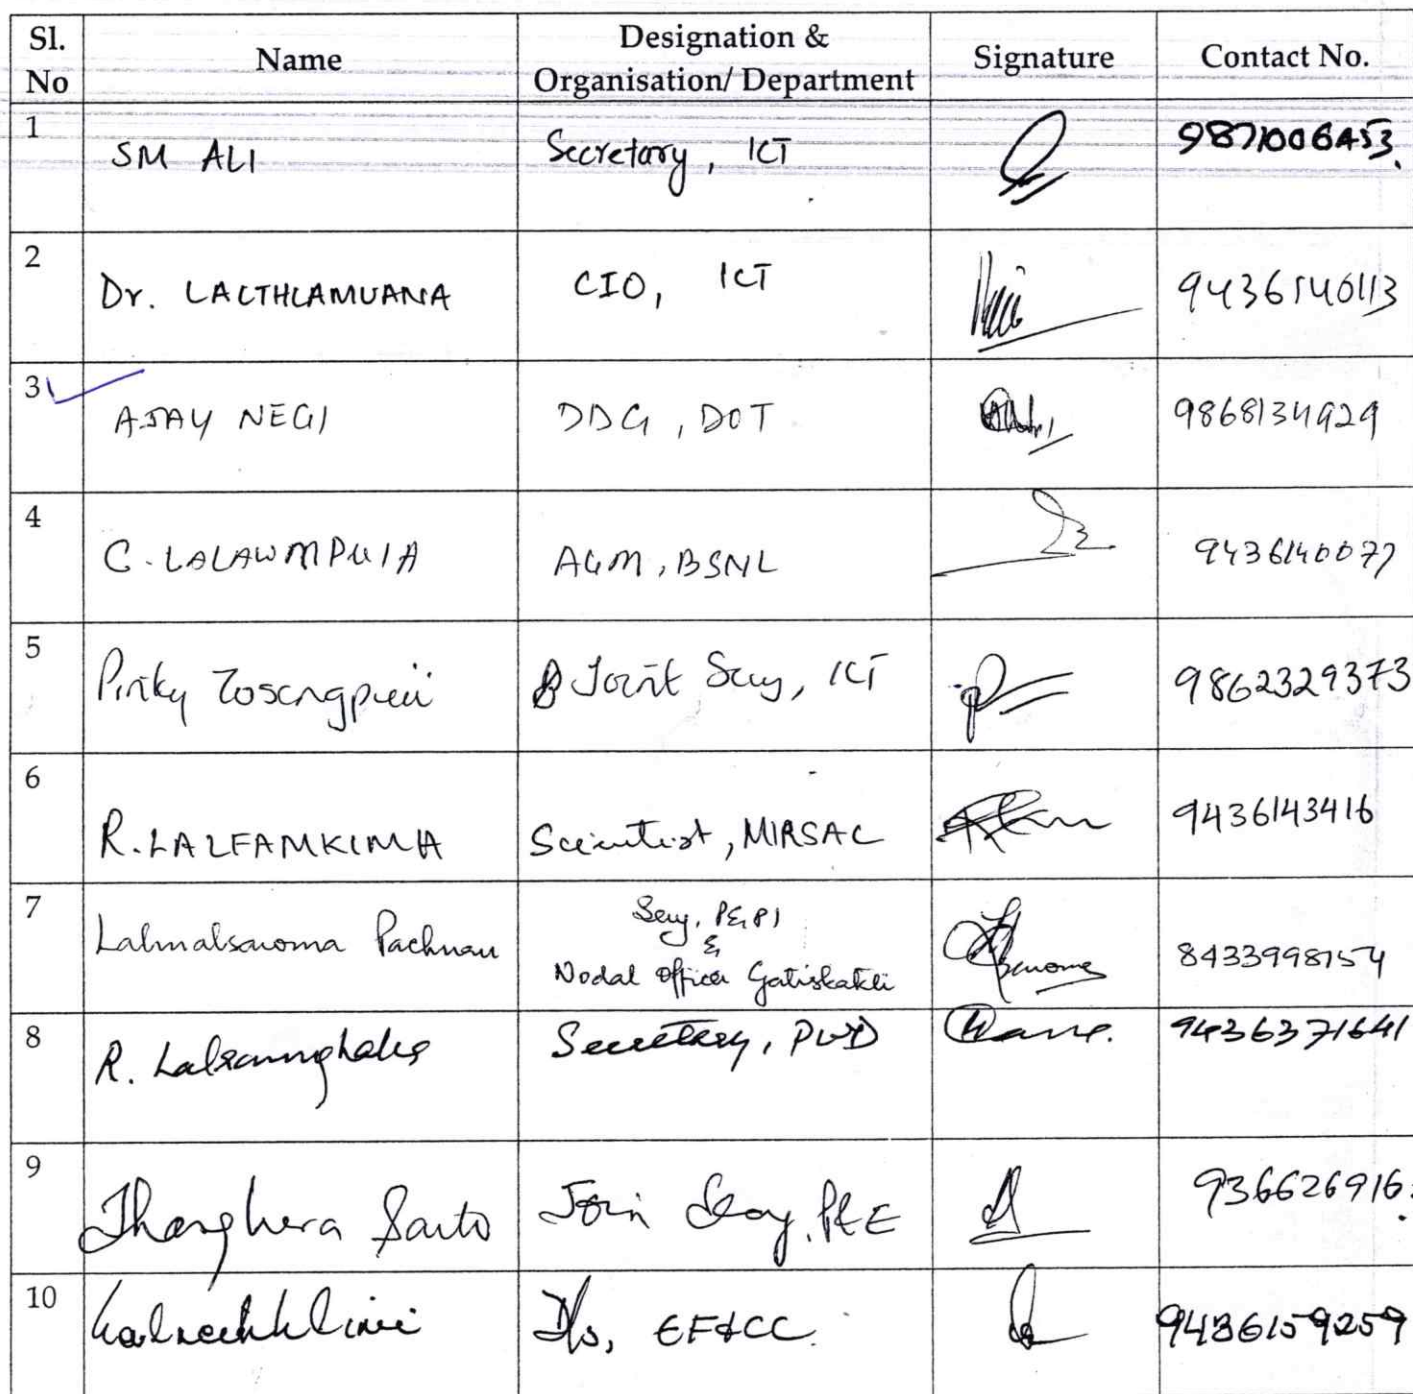 Sl. No Name Designation & Organisation/ Department Signature Contact No.
1 SM ALI Secretary, ICT 9871006453.
2 Dr. LALTHLAMUANA CIO, ICT 9436140113
3 AJAY NEGI DDG, DOT 9868134929
4 C. LALAWMPUIA AGM, BSNL 9436140077
5 Pinky Zosangpuii Joint Secy, ICT 9862329373
6 R. LALFAMKIMA Scientist, MIRSAC 9436143416
7 Lalmalsawma Pachuau Secy, PE, PI
&
Nodal Officer Gatishakti 8433998154
8 R. Secretary, PWD 9436371641
9 Thanghera Join Secy, 936626916
10 Ds, EF&CC. 9436159259